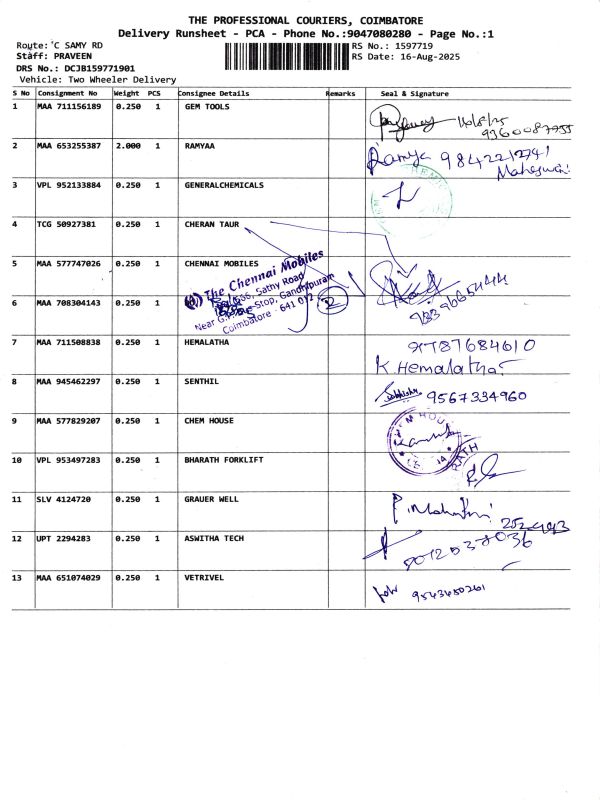 THE PROFESSIONAL COURIERS, COIMBATORE
Delivery Runsheet - PCA - Phone No.:9047080280 - Page No.:1
Route: 'C SAMY RD
Staff: PRAVEEN
DRS No.: DCJB159771901
Vehicle: Two Wheeler Delivery
RS No.: 1597719
RS Date: 16-Aug-2025
S No Consignment No Weight PCS Consignee Details Remarks Seal & Signature
1 MAA 711156189 0.250 1 GEM TOOLS
16/8/25
9360087955
2 MAA 653255387 2.000 1 RAMYAA
Ramya 9842212741
Maheswari
3 VPL 952133884 0.250 1 GENERALCHEMICALS
4 TCG 50927381 0.250 1 CHERAN TAUR
5 MAA 577747026 0.250 1 CHENNAI MOBILES
The Chennai Mobiles
Sathy Road
Stop, Gandhipuram
Coimbatore - 641 012
2
6 MAA 708304143 0.250 1
7 MAA 711508838 0.250 1 HEMALATHA
9787684610
K. Hemalatha
8 MAA 945462297 0.250 1 SENTHIL
9567334960
9 MAA 577829207 0.250 1 CHEM HOUSE
10 VPL 953497283 0.250 1 BHARATH FORKLIFT
11 SLV 4124720 0.250 1 GRAUER WELL
12 UPT 2294283 0.250 1 ASWITHA TECH
8012037036
13 MAA 651074029 0.250 1 VETRIVEL
9543450261